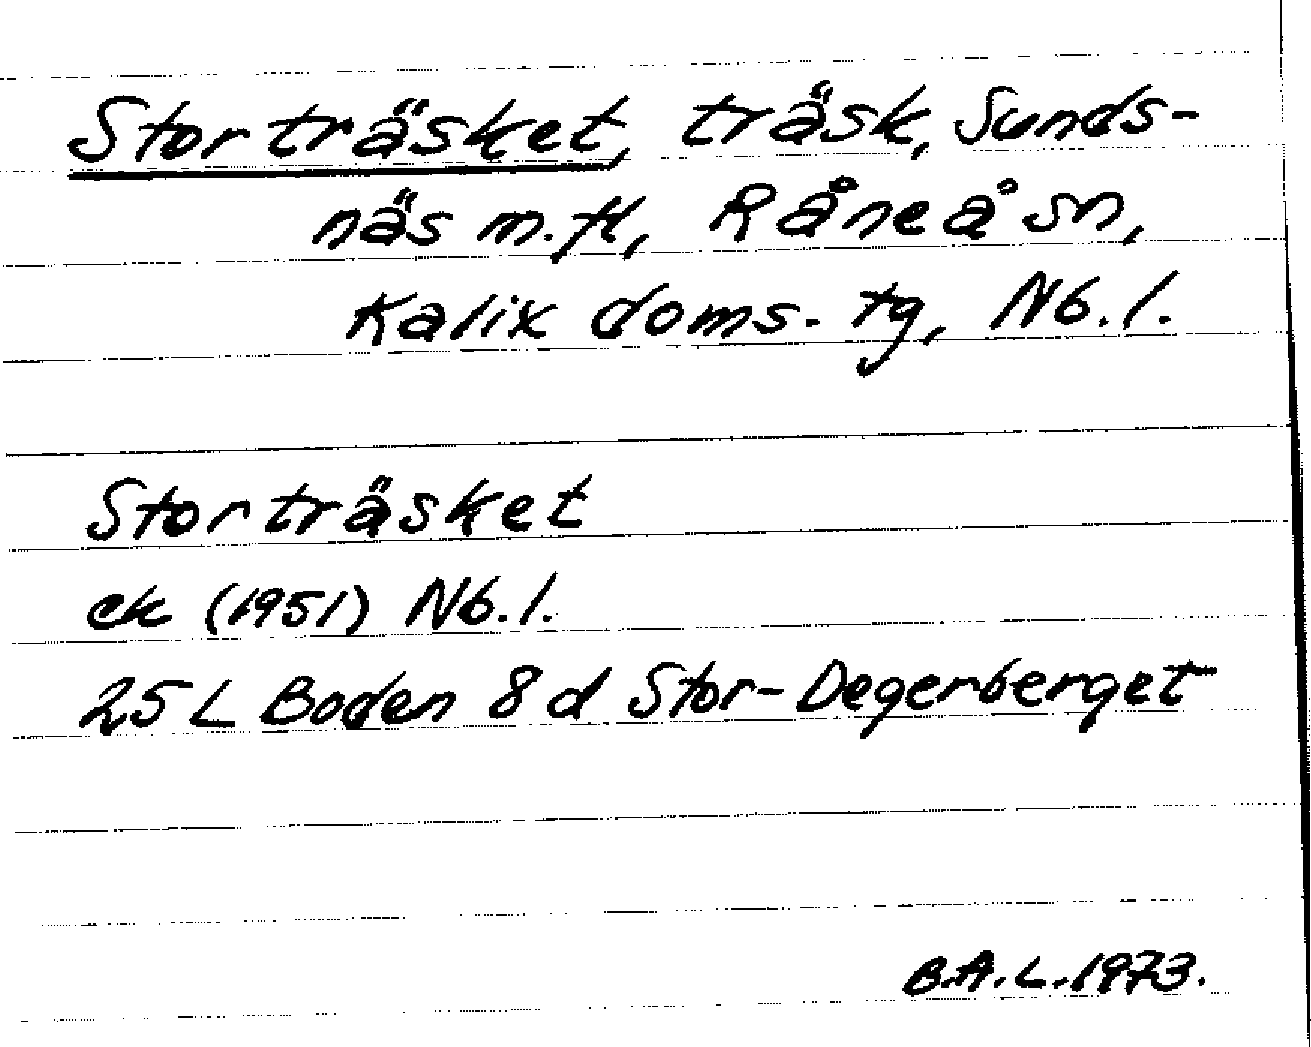 Storträsket, träsk, Sunds-
näs m.fl, Råneå sn,
Kalix doms. tg, Nb. l.
Storträsket
ek (1951) Nb. l.
25 L Boden 8 d Stor-Degerberget
B.A.L. 1973.